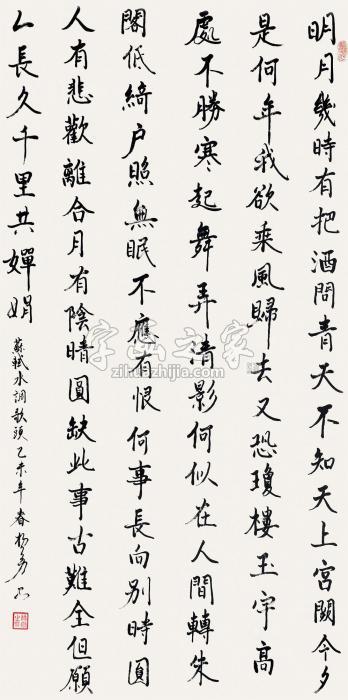 明月幾時有把酒問青天不知天上宮闕今夕
是何年我欲乘風歸去又恐瓊樓玉宇高
處不勝寒起舞弄清影何似在人間轉朱
閣低綺户照無眠不應有恨何事長向別時圓
人有悲歡離合月有陰晴圓缺此事古難全但願
人長久千里共嬋娟
蘇軾水調歌頭乙未年春
字画之家
zihuazhijia.com